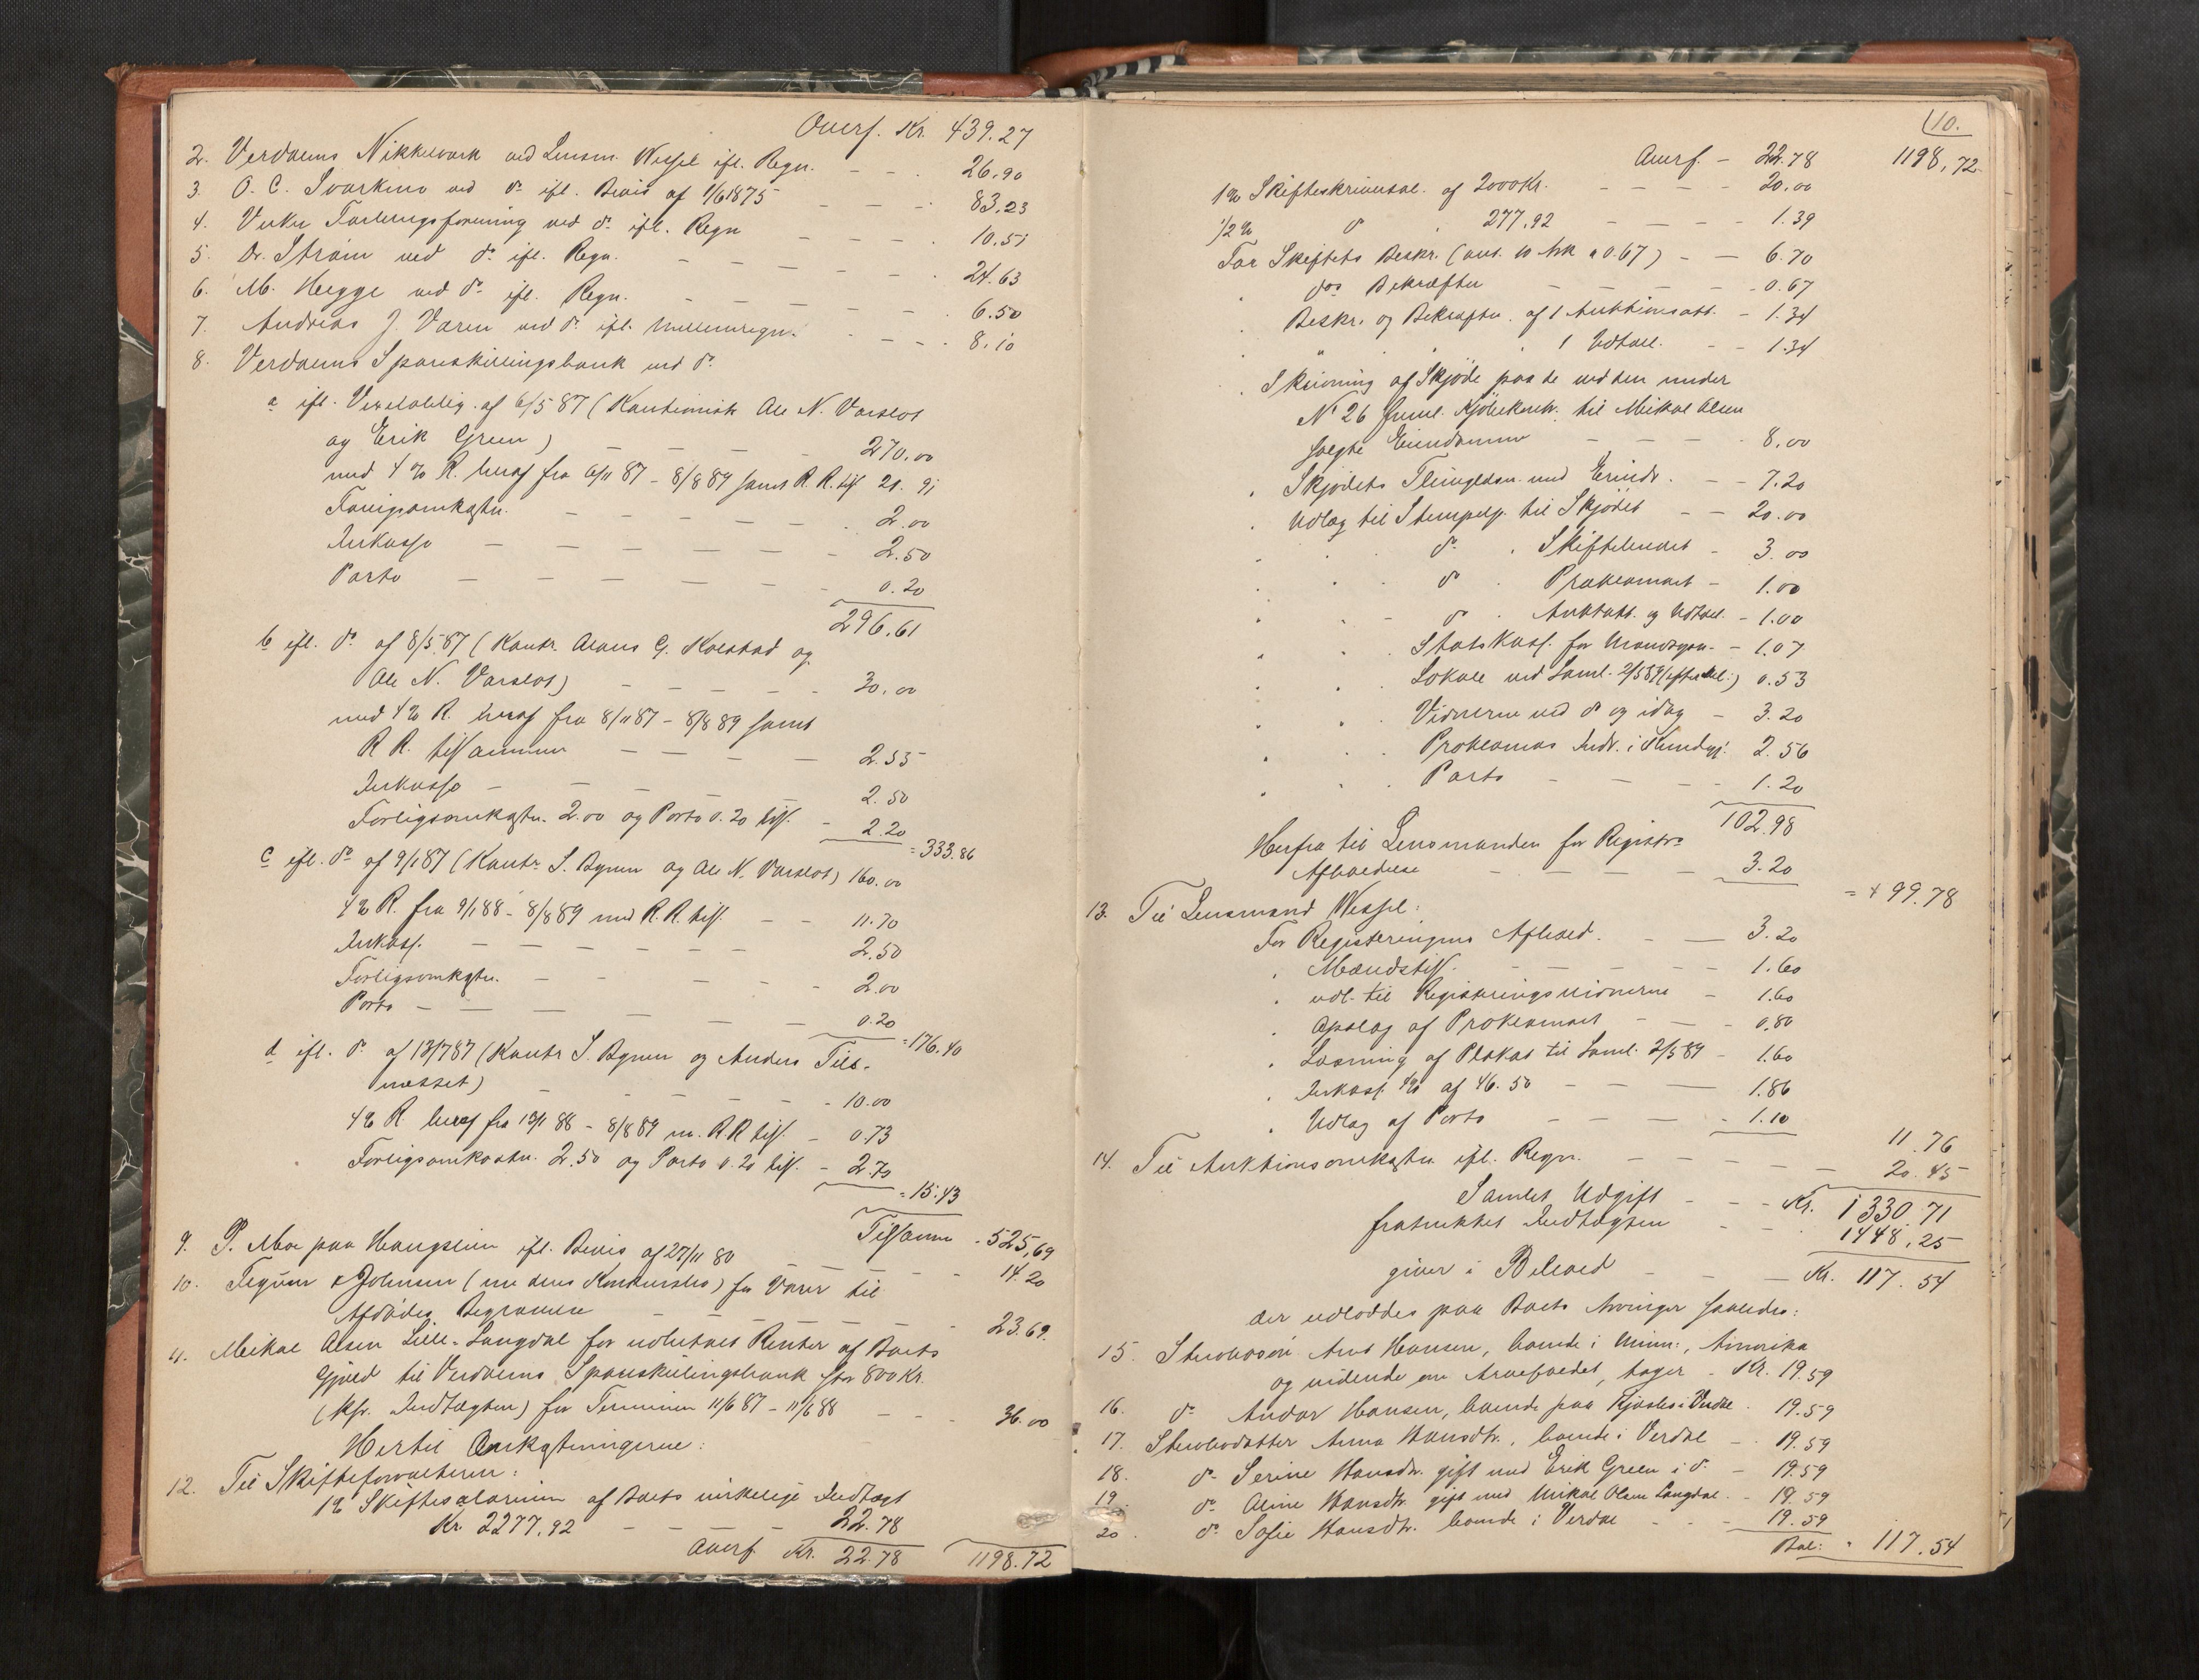 Overf. Kr. 439.27
2. Verdalens Nikkelverk ved Lensm. Wessel ifl. Regn. — — . 26.90
3. O. C. ved do ifl. Bevis af 1/6 1875 — — — . 83.23
4. Forbrugsforening ved do ifl. Regn — — — . 10.51
5. Dr. Strøm ved do ifl. Regn. — — — — . 24.63
6. M. Hegge ved do ifl. Regn. — — — — . 6.50
7. Andreas J. Varen ved do ifl. Mellemregn. — — — . 8.10
8. Verdalens Spareskillingsbank ved do
a ifl. Vexeloblig. af 6/5 87 (Kautionister Ole N. Varslot
og Erik Green) — — — — 270.00
med 4 % R. heraf fra 6/11 87 - 8/8 89 samt R. R. tils. 21.91
Forligsomkostn. — — — — — . 2.00
Inkasso — — — — — — 2.50
Porto — — — — — — 0.20
296.61
b ifl. do af 8/5 87 (Kautr. G. Kolstad og
Ole N. Varslot) — — — — — 30.00
med 4 % R. heraf fra 8/11 87 - 8/8 89 samt
R R. tilsammen — — — — 2.55
Inkasso — — — — — 2.50
Forligsomkostn. 2.00 og Porto 0.20 tils. — 2.20
= 333.86
c ifl. do af 9/1 87 (Kautr. S. Bynen og Ole N. Varslot) 160.00
4 % R. fra 9/1 88 - 8/8 89 med R. R. tils. — — 11.70
Inkass. — — — — — — 2.50
Forligsomkstn. — — — — — 2.00
Porto — — — — — — 0.20
= 176.40
d ifl. do af 13/7 87 (Kautr S. Bynen og Anders Tils-
næsset) — — — — — 10.00
4 % R heraf fra 13/1 88 - 8/8 89 m. R.R tils. — 0.73
Forligsomkostn. 2.50 og Porto 0.20 tils. — 2.70
= 15.43
Tilsamm - 525,69
9. P. Moe paa Haugslien ifl. Bevis af 27/11 80 — — — 14.20
10. & Johnsen (nu deres Konkursbo) for Varer til
Afdødes Begravelse — — — — — 23.69.
11. Mikal Olsen Lille-Langdal for udbetalt Renter af Boets
Gjæld til Verdalens Spareskillingsbank stor 800 Kr.
(kfr. Indtægten) for Terminen 11/6 87 - 11/6 88 — — 36.00
Hertil Omkostningerne:
12. Til Skifteforvalteren:
1 % Skiftesalarium af Boets virkelige Indtægt
Kr. 2277,92 — — — — 22.78
Overf. Kr. 22.78 1198.72
10.
Overf. — 22.78 1198,72
1 % Skifteskriversal. af 2000 Kr. — — — — 20.00
1/2 % do . 277.92 — — — 1.39
For Skiftets Beskr. (ans. 10 Ark a 0.67) — — 6.70
dos Bekræftn — — — — 0.67
Beskr. og Bekræftn. af 1 Auktionsatt. — 1.34
1 Udtal. — — 1.34
Skrivning af Skjøde paa de ved den under
No 26 fremL. Kjøbekontr. til Mikal Olsen
solgte Eiendomme — — — 8.00
Skjødets Thinglæsn. med Erindr. — — 7.20
Udlæg til Stempelp. til Skjødet — — 20.00
do . Skiftebrevet — 3.00
do . Proklamaet — 1.00
do . Auktatt. og Udtal. — 1.00
Statskass. for — 1.07
Lokale ved Saml. 2/5 89 0.53
Vidnerne ved do og idag — 3.20
Proklamas Indr. i Kundgj. 2.56
Porto — — — 1.20
102.98
Herfra til Lensmanden for Registrs
Afholdelse — — — — 3.20
= 99.78
13. Til Lensmand Wessel:
For Registreringens Afhold. — — 3.20
Mændstils. — — — — 1.60
udl. til Registreringsvidnerne — 1.60
Opslag af Proklamaet — — 0.80
Læsning af Plakat til Saml. 2/5 89 — 1.60
Inkass. 4 % af 46.50 — — — 1.86
Udlæg af Porto — — — 1.10
11.76
14. Til Auktionsomkostn. ifl. Regn. — — — — 20.45
Samlet Udgift — — Kr. 1330.71
fratrukket Indtægten — — 1448.25
giver i Behold — — — Kr. 117.54
der udloddes paa Boets Arvinger saaledes:
15. Hansen, boende i Minn:, Amerika
og vidende om Arvefaldet, tager — Kr. 19.59
16. do Hansen, boende paa i Verdal . 19.59
17. Anna Hansdtr., boende i Verdal — . 19.59
18. do Serine Hansdtr. gift med Erik Green i do — 19.59
19. do Oline Hansdtr. gift med Mikal Olsen Langdal — 19.59
20 do Sofie Hansdtr. boende i Verdal — — 19.59
Bal: . 117.54